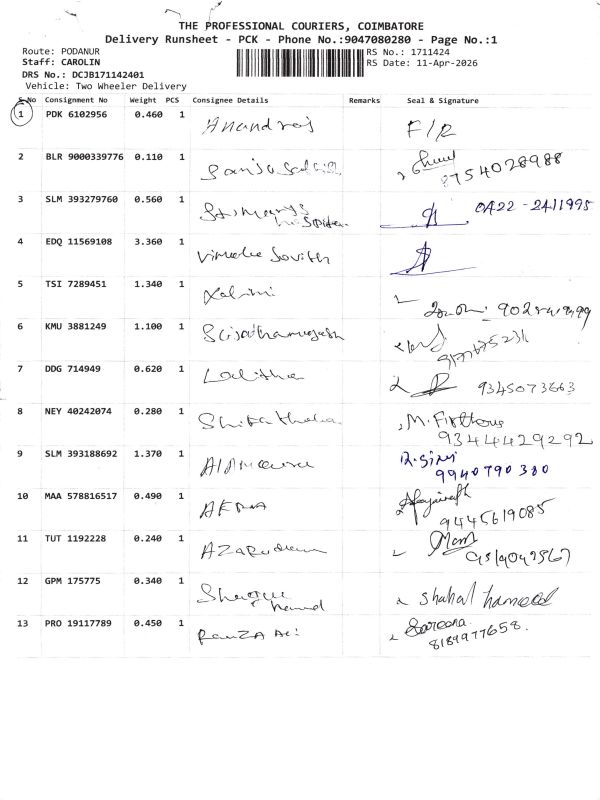 THE PROFESSIONAL COURIERS, COIMBATORE
Delivery Runsheet - PCK - Phone No.:9047080280 - Page No.:1
Route: PODANUR
RS No.: 1711424
Staff: CAROLIN
RS Date: 11-Apr-2026
DRS No.: DCJB171142401
Vehicle: Two Wheeler Delivery
S.No Consignment No Weight PCS Consignee Details Remarks Seal & Signature
1 PDK 6102956 0.460 1 Anandraj F/R
2 BLR 9000339776 0.110 1
8754028988
3 SLM 393279760 0.560 1 St. Marys 0422-2411995
hospital
4 EDQ 11569108 3.360 1
5 TSI 7289451 1.340 1
6 KMU 3881249 1.100 1
7 DDG 714949 0.620 1 Lalitha 9345073663
8 NEY 40242074 0.280 1 M. Firthous
9344429292
9 SLM 393188692 1.370 1 R. Sini
9940790380
10 MAA 578816517 0.490 1
9445619085
11 TUT 1192228 0.240 1
12 GPM 175775 0.340 1 Shahal hameed
13 PRO 19117789 0.450 1 Sareena
8189977658.